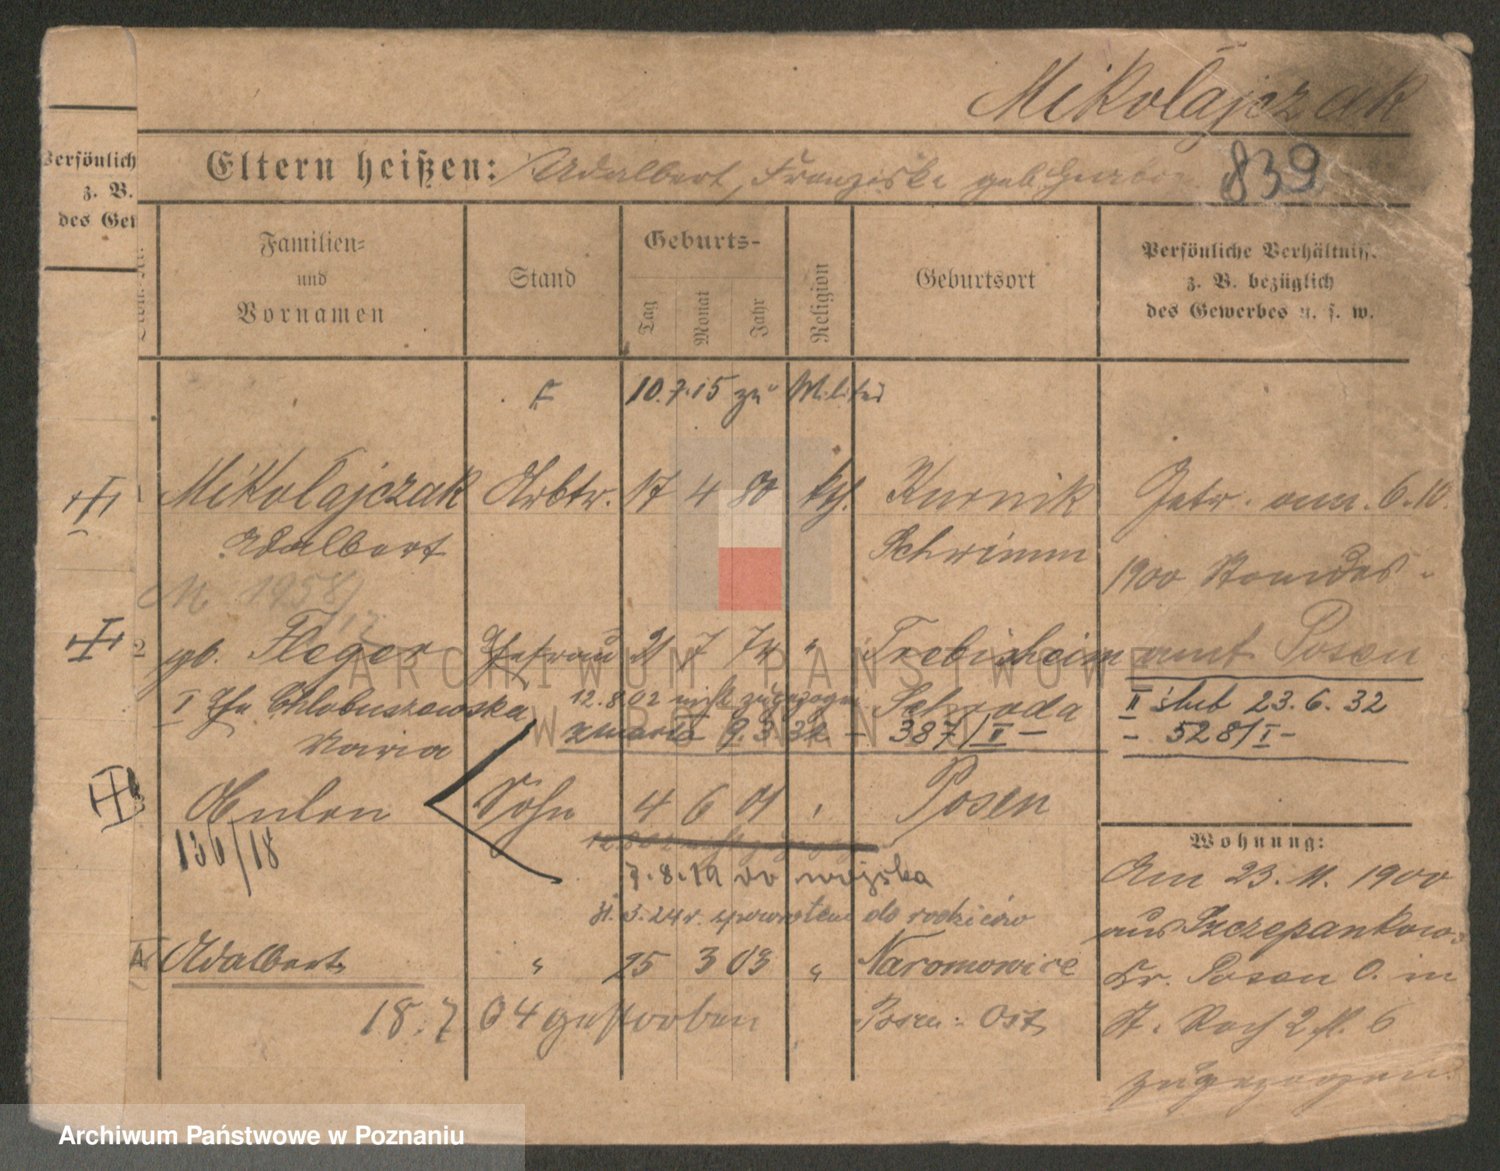 Mikołajczak
839
Persönlich
z. B.
des Gew
Eltern heißen: Adalbert, Franziska geb.
Familien- und Vornamen
Stand
Geburts-
Tag
Monat
Jahr
Religion
Geburtsort
Persönliche Verhältniss
z. B. bezüglich
des Gewerbes u. s. w.
10.7.15 zu Militär
1 Mikołajczak Arbtr. 17 4 80 kth. Kurnik Getr. am. 6.10.
Adalbert Schrimm 1900 Standes-
M 1958/
2 gb. Fleger Ehefrau 21 7 74 " Trebisheim amt Posen
I Ehe Chlobuszewska 12.8.02 mit zugezogen Schroda II ślub 23.6.32
Maria zmarła 9 3 32 - 387/II - - 528/I -
Sohn 4 6 01 " Posen
136/18
Wohnung:
7.8.19 do wojska
Am 23.11.1900
3.24 r. spowrotem do rodziców
aus Szczepankowo
4 Adalbert " 25 3 03 " Naromowice
Kr. Posen O. in
18.7 04 gestorben Posen-Ost
St. Roch 2 fl. 6
zugezogen.
ARCHIWUM PAŃSTWOWE
W POZNANIU
Archiwum Państwowe w Poznaniu